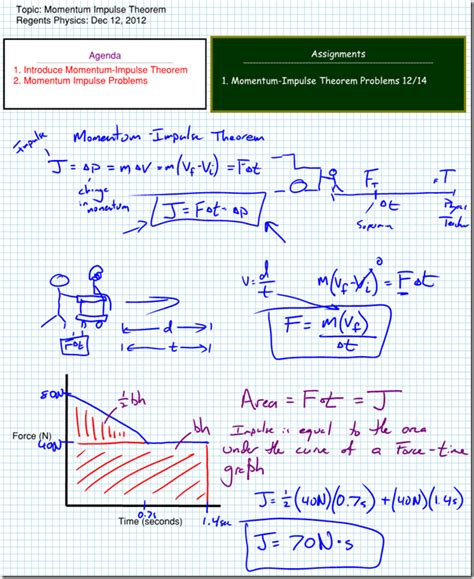 Topic: Momentum Impulse Theorem
Regents Physics: Dec 12, 2012
Agenda
1. Introduce Momentum-Impulse Theorem
2. Momentum Impulse Problems
Assignments
1. Momentum-Impulse Theorem Problems 12/14
Momentum-Impulse Theorem
Impulse
J = Δp = mΔV = m(Vf-Vi) = FΔt
change in momentum
J = FΔt = Δp
FT
= T
Δt
Physics Teacher
V = d/t
m(Vf-Vi) = FΔt
0
F = m(Vf)/Δt
FΔt
d
t
80N
½bh
bh
Force (N)
40N
0.7s
1.4sec
Time (seconds)
Area = FΔt = J
Impulse is equal to the area
under the curve of a Force-time
graph
J = ½(40N)(0.7s) + (40N)(1.4s)
J = 70N·s